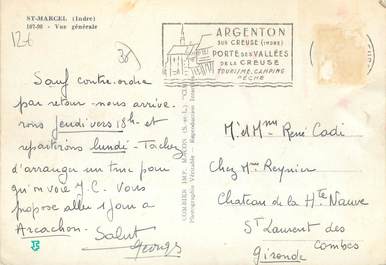 ST-MARCEL (Indre)
107-98 - Vue générale
ARGENTON
SUR CREUSE (INDRE)
PORTE DES VALLÉES
DE LA CREUSE
TOURISME, CAMPING
PÊCHE
Sauf contre-ordre
par retour - nous arrive
rons jeudi vers 18h - et
repartirons lundi - Tachez
d'arranger un truc pour
qu'on voie M.C. Vous
propose aller 1 jour à
Arcachon.
Salut
Georges
COMBIER IMP. MACON (S.-et-L.)
Photographie Véritable - Reproduction
M' et Mme René Cadi
Chez Mme Reynier
Chateau de la Hte Nauve
St Laurent des
Combes
Gironde